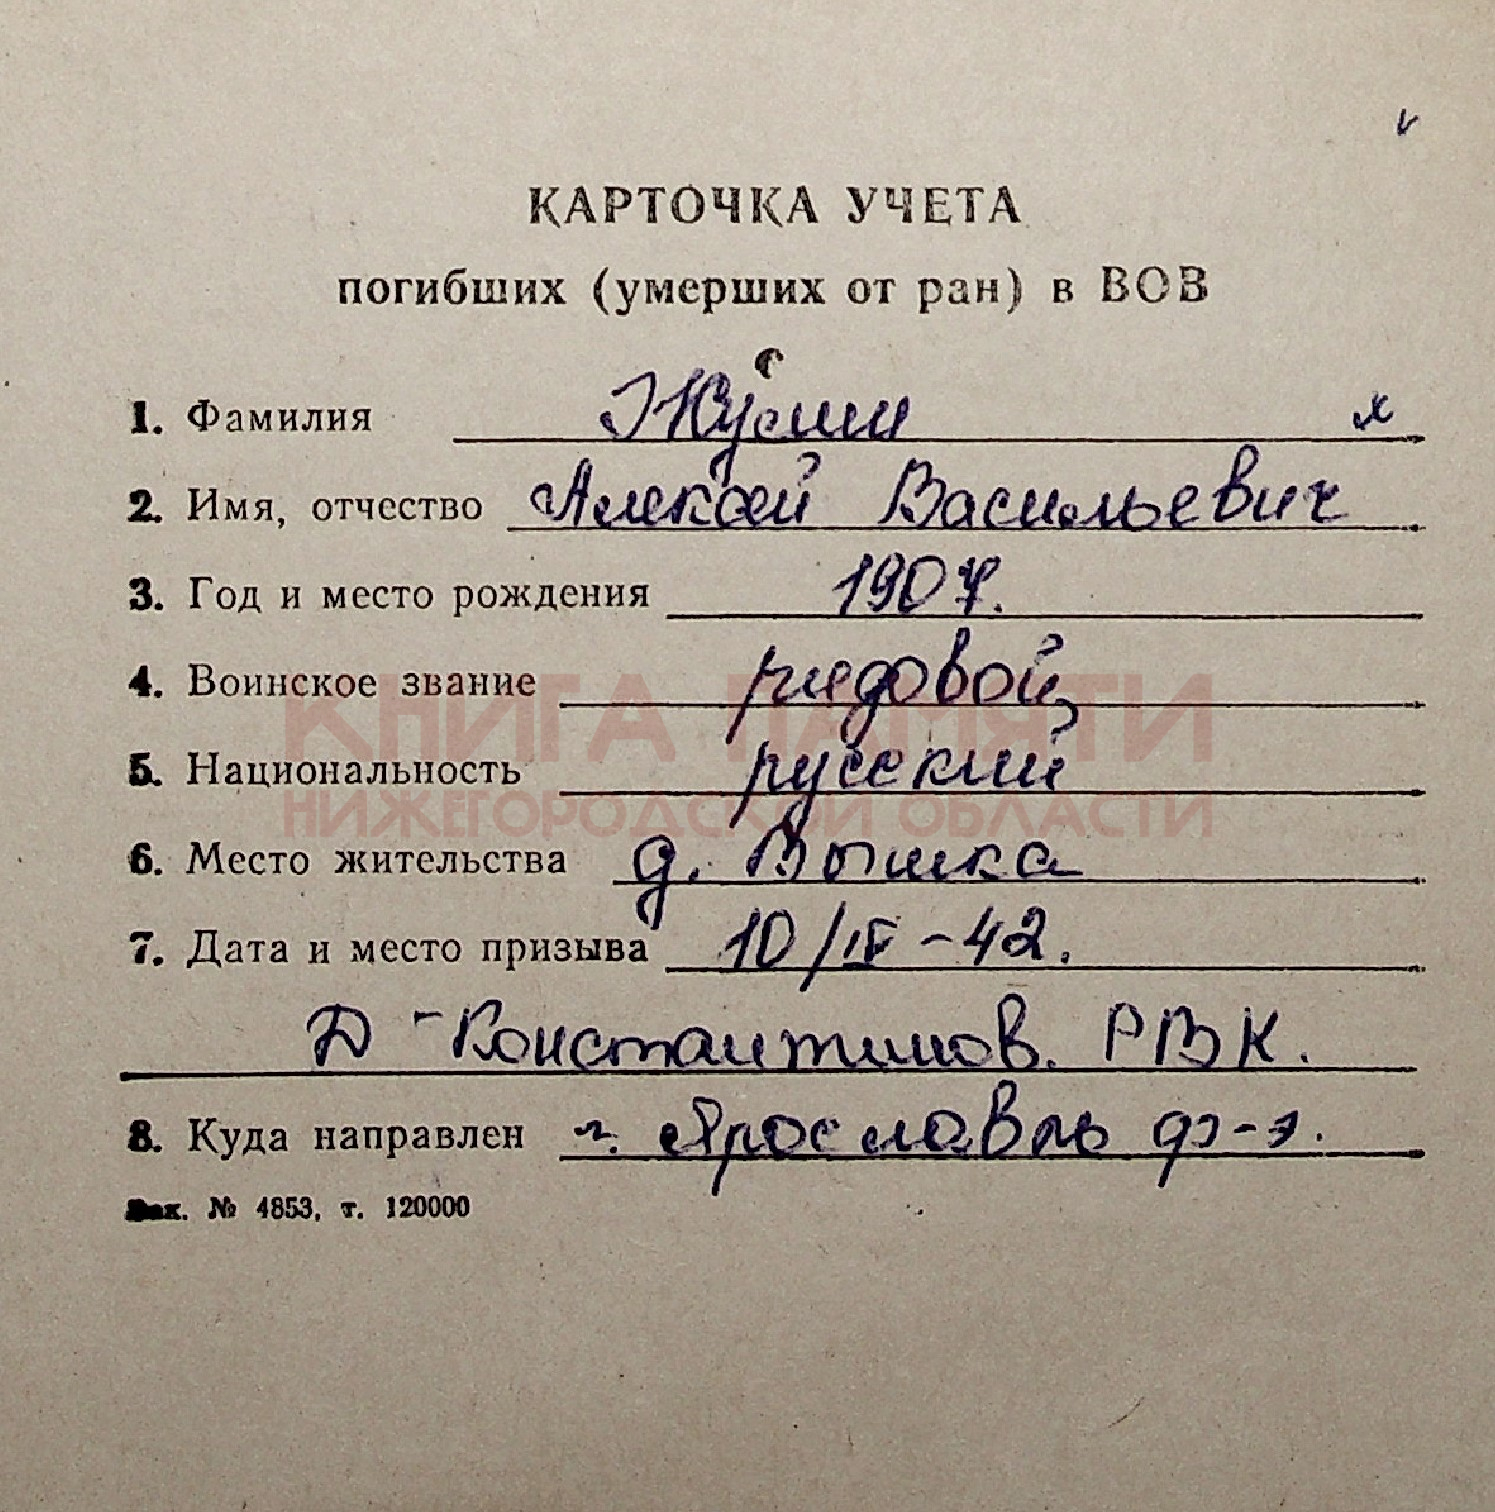 КАРТОЧКА УЧЕТА
погибших (умерших от ран) в ВОВ
1. Фамилия
2. Имя, отчество Алексей Васильевич
3. Год и место рождения 1907.
4. Воинское звание рядовой
5. Национальность русский
КНИГА ПАМЯТИ
НИЖЕГОРОДСКОЙ ОБЛАСТИ
6. Место жительства д. Вышка
7. Дата и место призыва 10/IV-42.
Д-Константинов. РВК.
8. Куда направлен г. Ярославль
Зак. № 4853, т. 120000